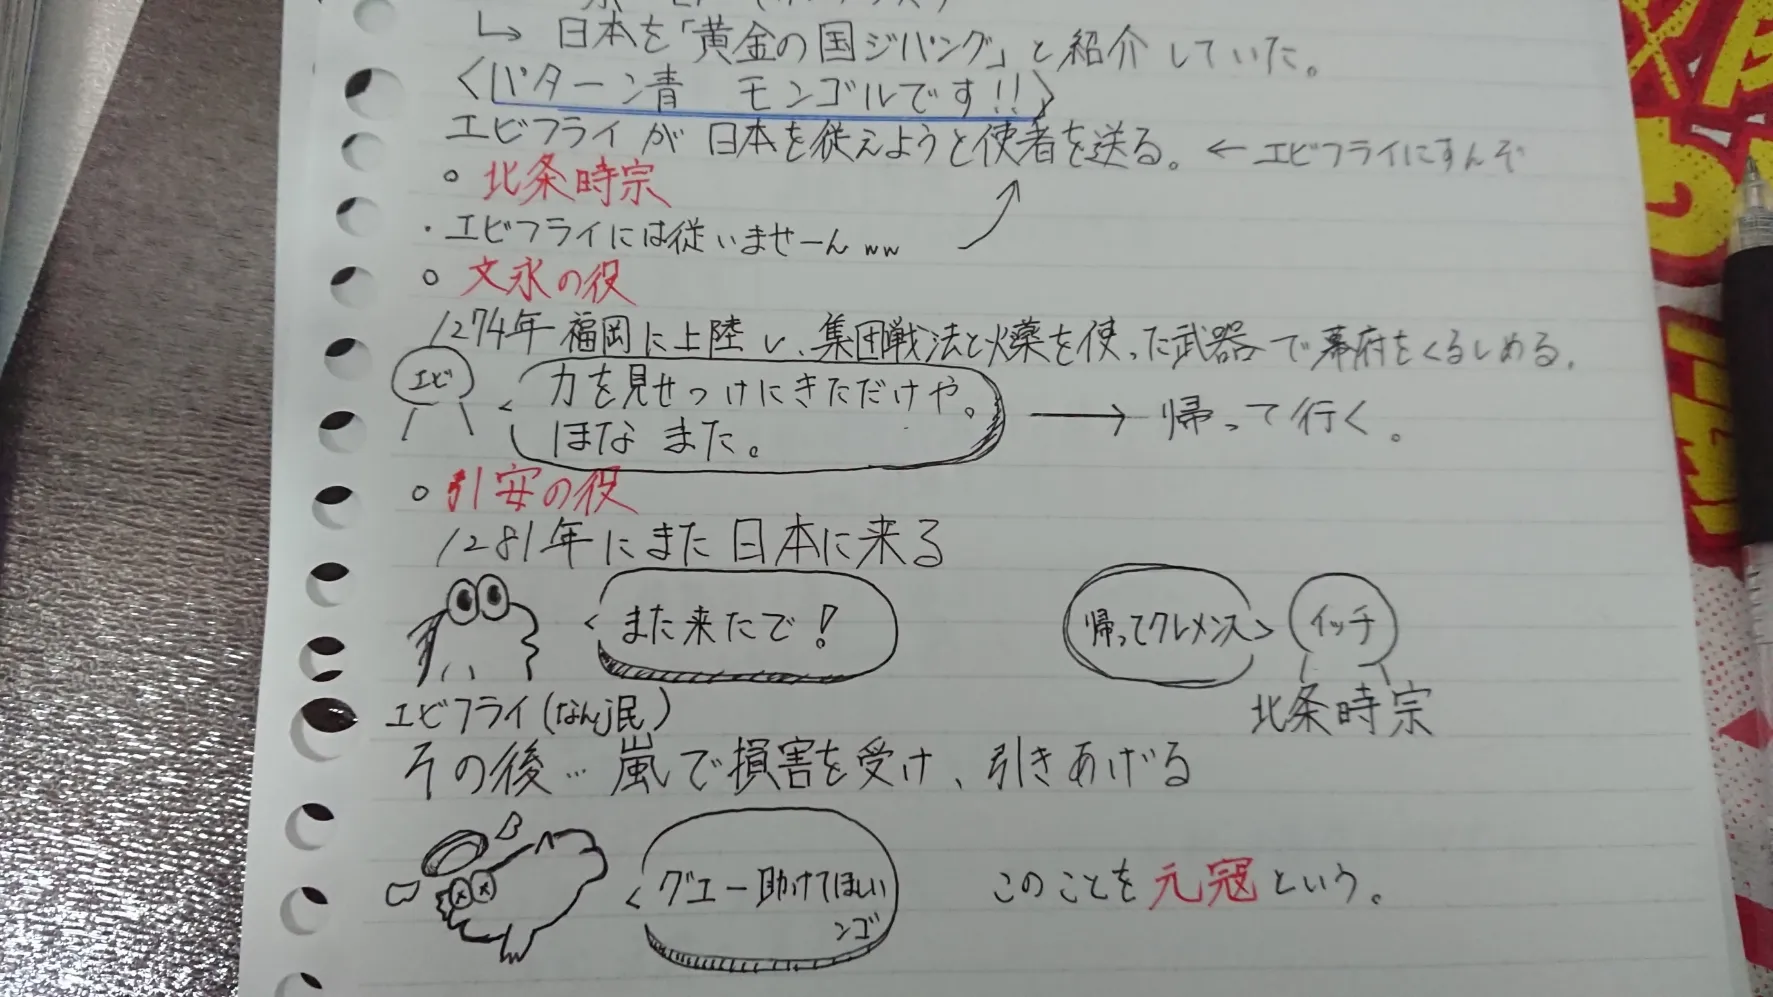 ↳ 日本を「黄金の国ジパング」と紹介していた。
〈パターン青 モンゴルです!!〉
エビフライが日本を従えようと使者を送る。 ← エビフライにすんぞ
○ 北条時宗
・エビフライには従いませーんww
○ 文永の役
1274年福岡に上陸し、集団戦法と火薬を使った武器で幕府をくるしめる。
エビ
力を見せつけにきただけや。
ほなまた。
→ 帰って行く。
○ 引安の役
1281年にまた日本に来る
また来たで!
帰ってクレメンス
イッチ
エビフライ(なんj民)
北条時宗
その後…嵐で損害を受け、引きあげる
グエー助けてほしい
ンゴ
このことを元冠という。